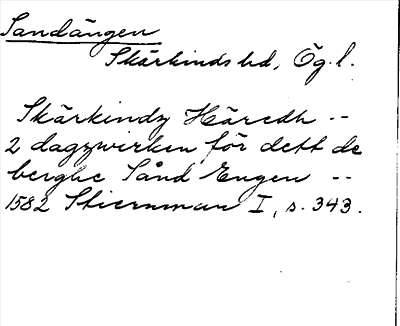 Sandängen
Skärkinds hd, Ög.l.
Skärkindz Häredh --
2 dagzwirken för dett de
berghe Sånd Engen --
1582 Stiernman I, s. 343.